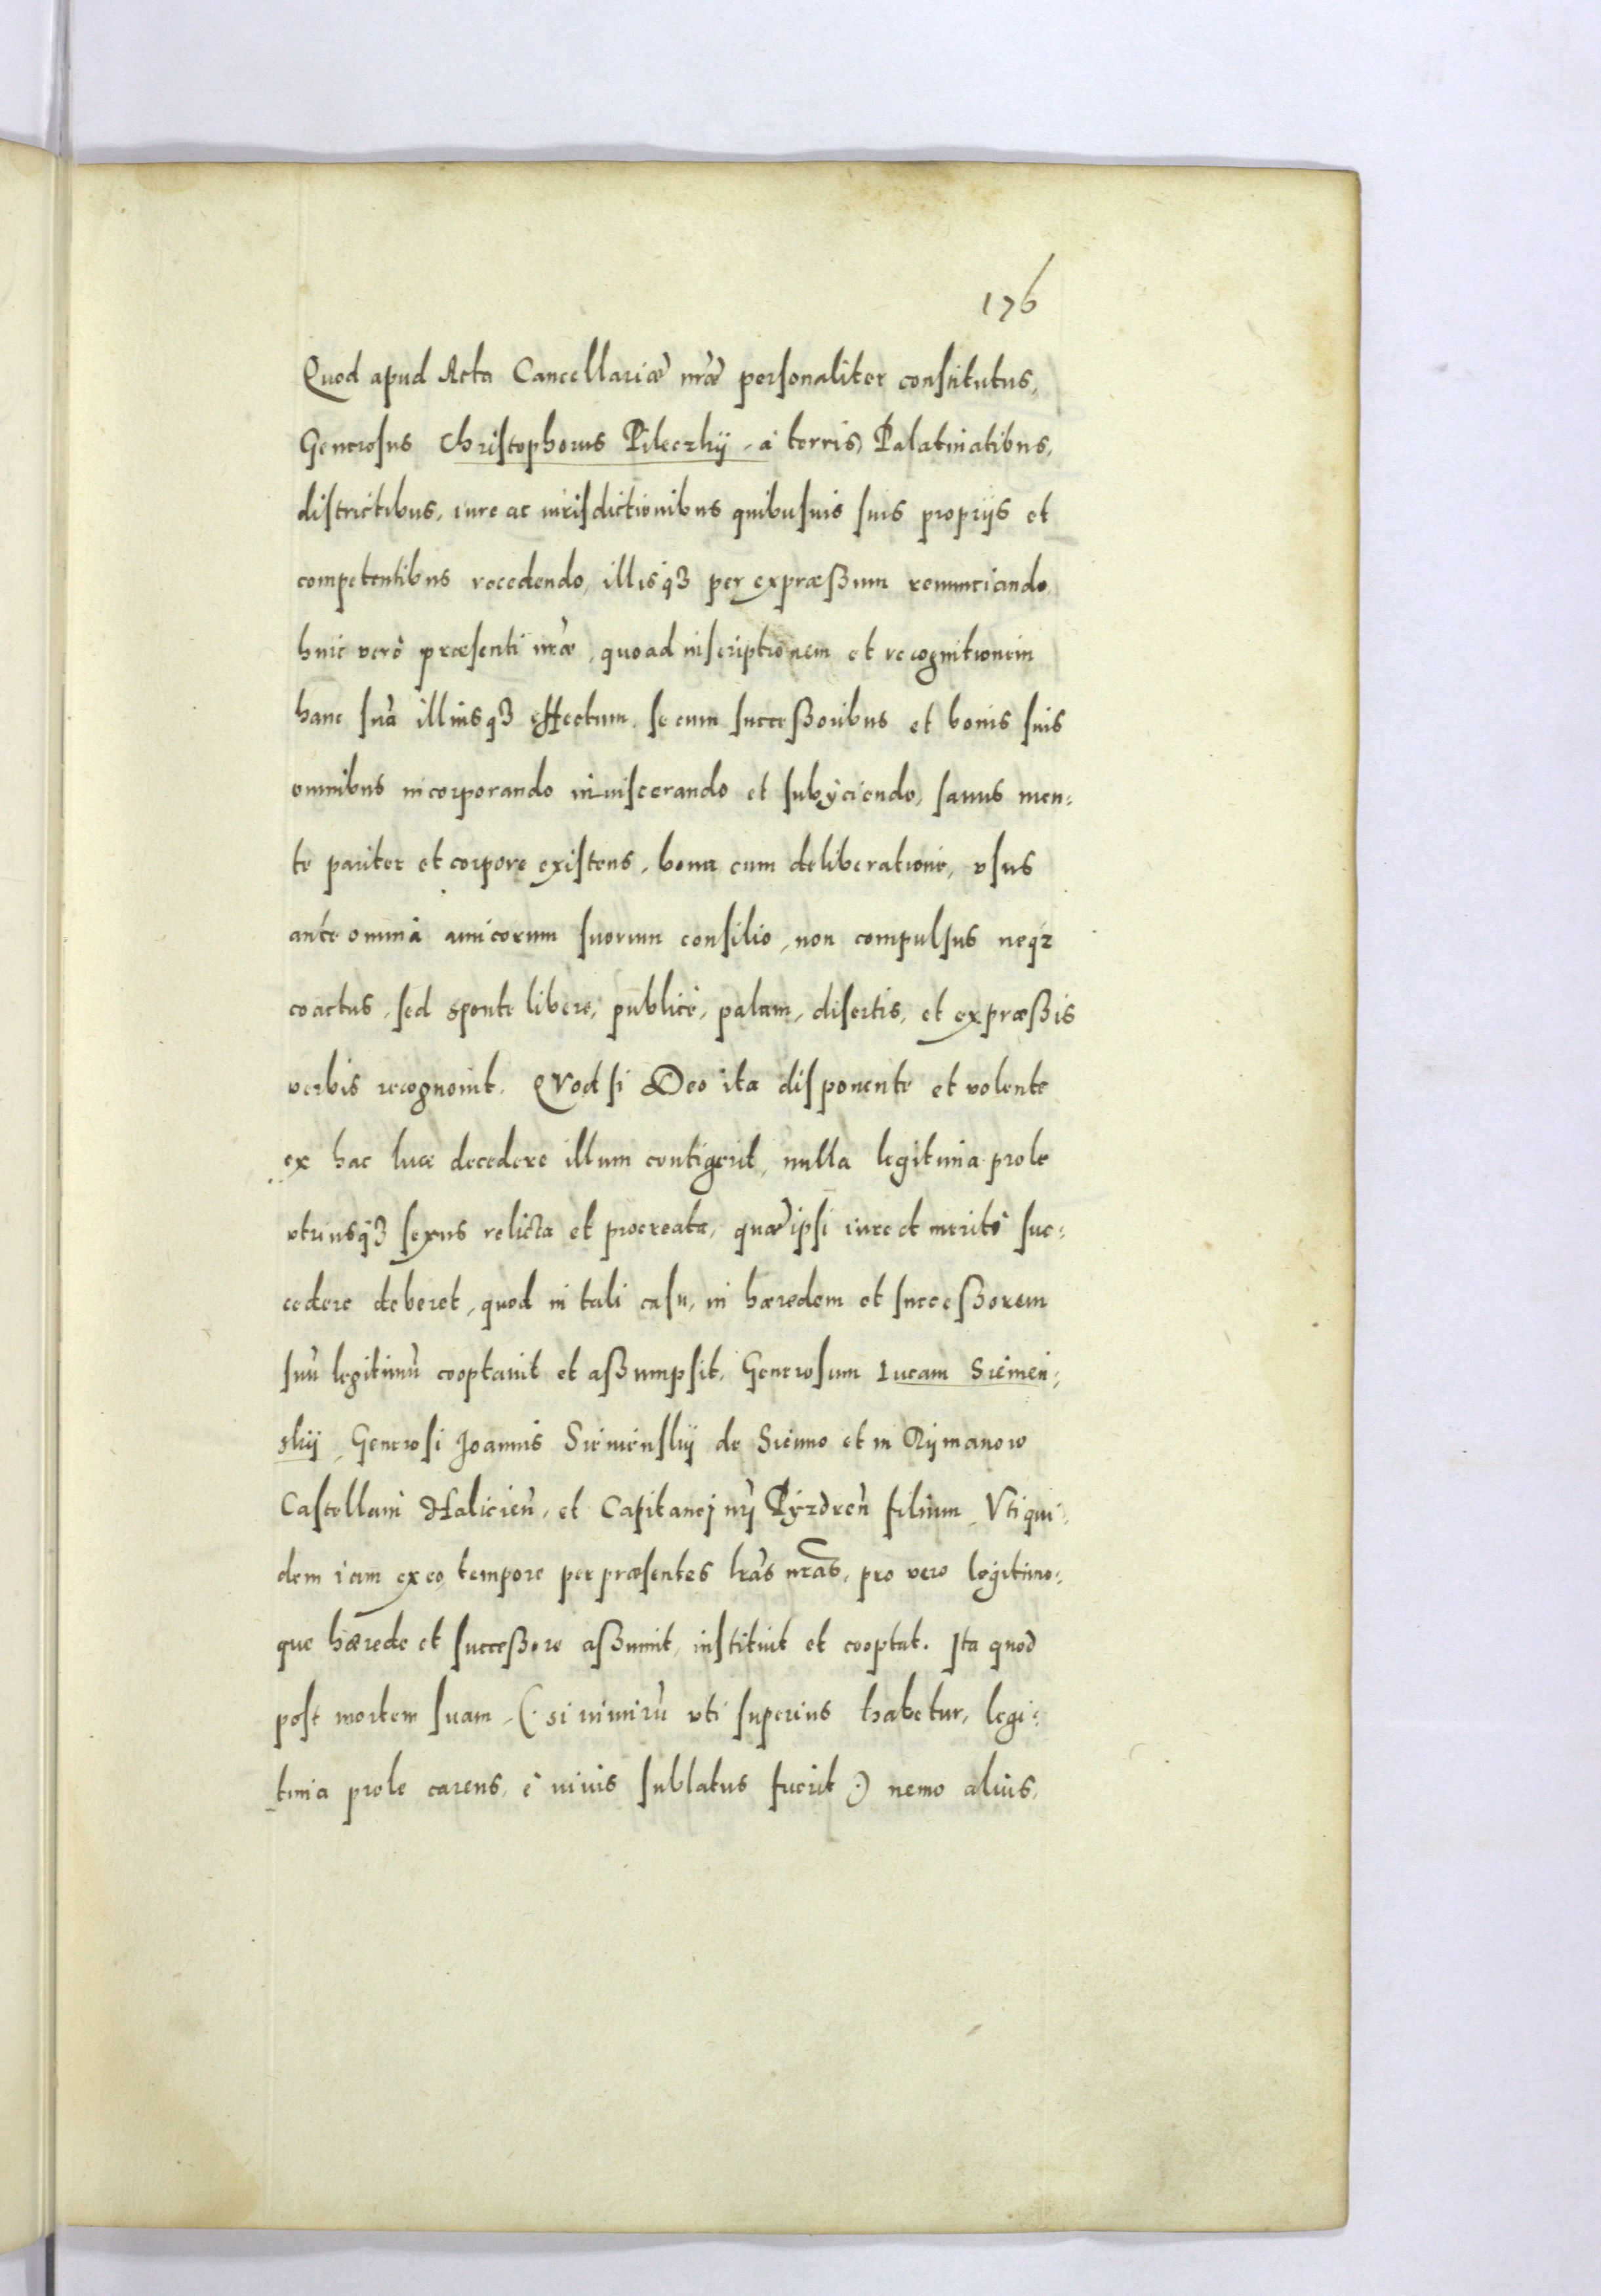 176
Quod apud Acta Cancellariæ nr̃æ personaliter constitutus,
Generosus Christophorus Pileczkij, à terris, Palatinatibus,
districtibus, iure ac iurisdictionibus quibusuis suis proprijs et
competentibus recedendo, illisq3 per expræßum renunciando,
huic verò præsenti nr̃æ, quo ad inscriptionem et recognitionem
hanc suã illiusq3 effectum, se cum succeßoribus et bonis suis
omnibus incorporando inuiscerando et subÿciendo, sanus men:
te pariter et corpore existens, bona cum deliberatione, vsus
ante omnia amicorum suorum consilio, non compulsus neq3
coactus, sed sponte libere, publicè, palam, disertis, et expræßis
verbis recognouit. Quod si Deo ita disponente et volente
ex hac luce decedere illum contigerit, nulla legitima prole
vtriusq3 sexus relicta et procreata, quæ ipsi iure et meritò suc:
cedere deberet, quod in tali casu, in hæredem et succeßorem
suũ legitimũ cooptauit et aßumpsit, Generosum Lucam Sieinien:
skij, Generosi Joannis Sieninskij de Sienno et in Rijmanow
Castellani Halicień, et Capitanej nrj Pyzdreń filium, Vti qui:
dem iam ex eo tempore per præsentes lrãs nrãs, pro vero legitimo:
que hærede et succeßore aßumit, instituit et cooptat. Ita quod
post mortem suam, (. si nimirũ vti superius habetur, legi:
tima prole carens, è viuis sublatus fuerit .) nemo alius,